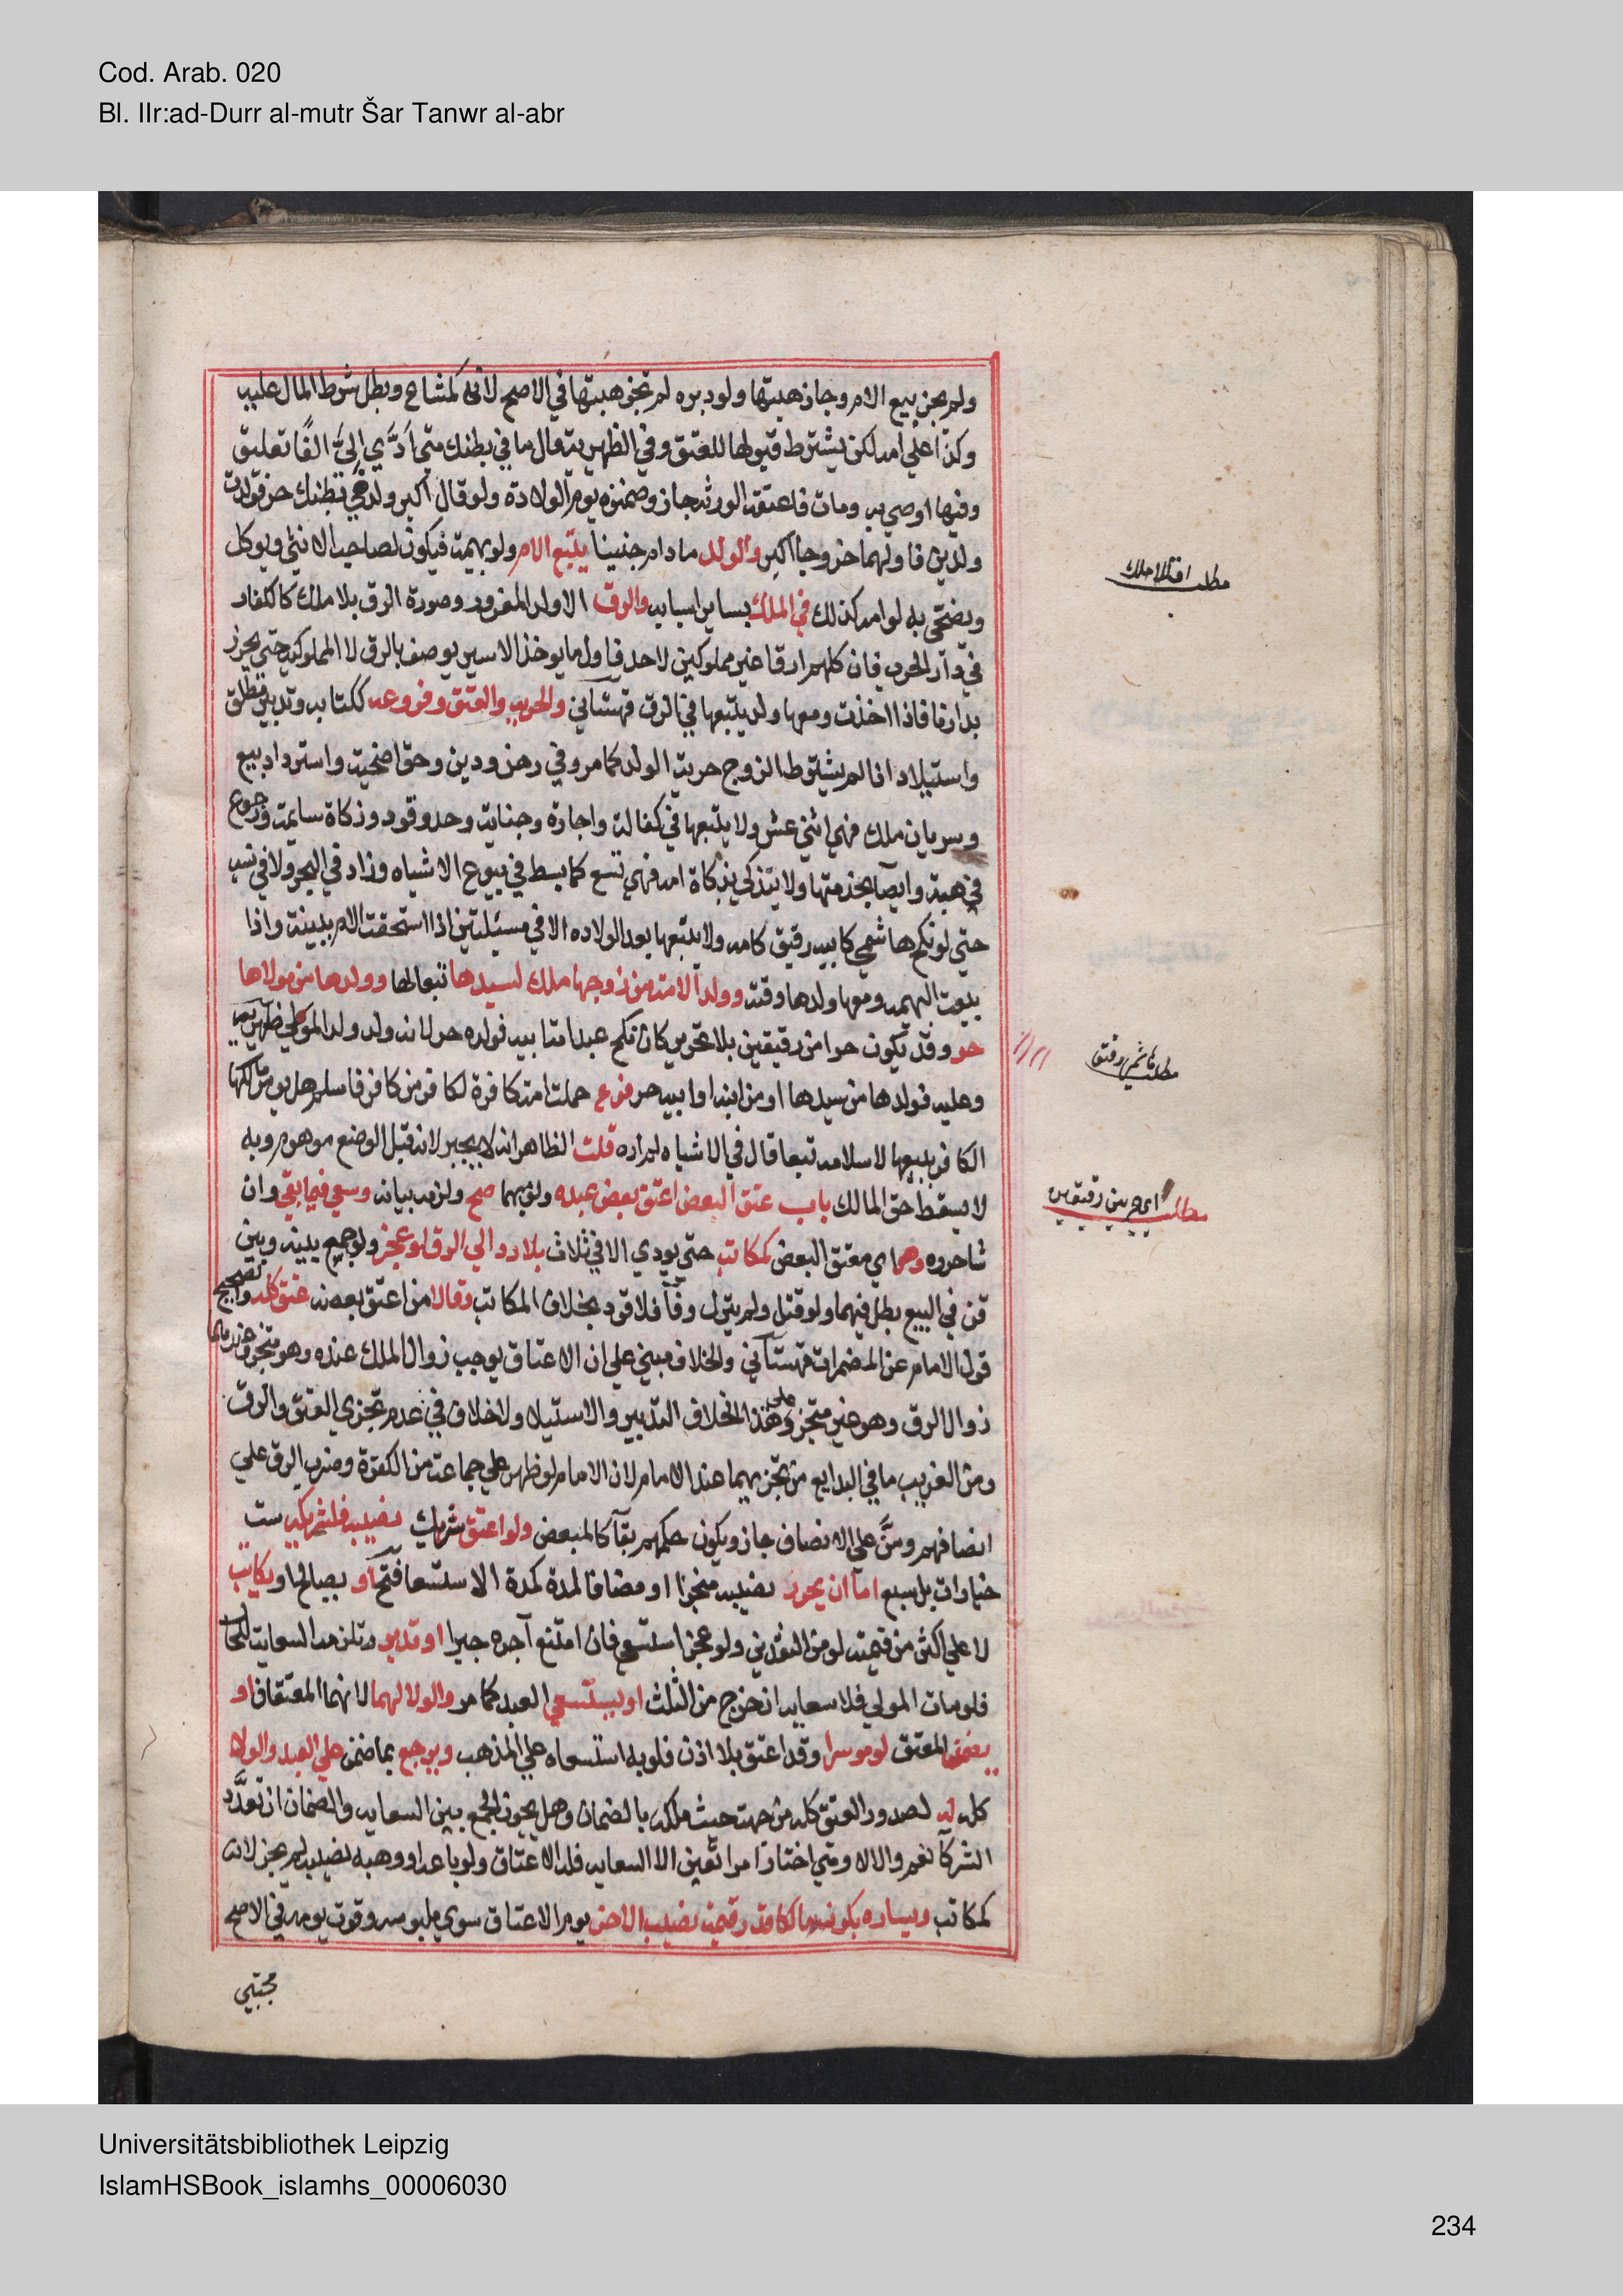 Cod. Arab. 020
Bl. IIr:ad-Durr al-mutr Šar Tanwr al-abr
ولم يجز بيع الام وجاز هبتها ولو دبره لم تجز هبتها في الاصح لانه كمشاع وبطل شرط المال عليه
وكذا علي امه لكن يشترط قبولها للعتق وفي الظهيرية قال ما في بطنك متي ادّي اليَّ الفًا تعليق
وفيها اوصي به ومات فاعتقه الورثه جاز وضمنوه يوم الولادة ولو قال اكبر ولد في بطنك حر فولدت
ولدين فاولهما خروجا اكبر والولد مادام جنينا يتبع الام ولو بهيمة فيكون لصاحب الانثي ويوكل
ويضحّي به لو امه كذلك في الملك بساير اسبابه والرق الا ولد المغرور وصورة الرق بلا ملك كالكفار
في دار الحرب فان كلهم ارقا غير مملوكين لاحد فاول ما يوخذ الاسير يوصف بالرق لا المملوكية حتي يحرز
بدارنا فاذا اخذت ومعها ولد يتبعها في الرق قهستاني والحرية والعتق وفروعه ككتابه وتدبير مطلق
واستيلاد اذا لم يشترط الزوج حرية الولد كما مر وفي رهن ودين وحق اضحية واسترداد بيع
وسريان ملك فهي اثني عشر ولا يتبعها في كفالة واجارة وجناية وحد وقود وزكاة سايمة ورجوع
في هبة وايصا بخدمتها ولا يتذكي بذكاة امه فهي تسع كما بسط في بيوع الاشباه وزاد في البحر ولا في نسب
حتي لو نكح هاشمي كابيه رقيق كامه ولا يتبعها بعد الولاده الا في مسئلتين اذا استحقت الام ببينة واذا
بيعت البهيمة ومعها ولدها وقته وولد الامة من زوجها ملك لسيدها تبعا لها وولدها من مولاها
حر وقد يكون حرا من رقيقين بلا تحرير كان نكح عبد امة ابيه فولده حر لانه ولد ولد المولي ظهيرية
وعليه فولدها من سيدها او من ابنه او ابيه حر فرع حملت امة كافرة لكافر من كافر فاسلم هل يومر مالكها
الكافر ببيعها لاسلامه تبعا قال في الاشباه لم اره قلت الظاهر انه لا يجبر لانه قبل الوضع موهوم وبه
لا يسقط حق المالك باب عتق البعض اعتق بعض عبده ولو مبهما صح ولزمه بيانه وسعي فيما بقي وان
شا حرره وهو اي معتق البعض كمكاتب حتي يودي الا في ثلاث بلا رد الي الرق لو عجز ولو جمع بينه وبين
قن في البيع بطل فيهما ولو قتل ولم يترك وفا فلا قود بخلاف المكاتب وقالا من اعتق بعضه عتق كله والصحيح
قول الامام عن المضمرات قهستاني والخلاف مبني علي ان الاعتاق يوجب زوال الملك عنده وهو متجز وعندهما
زوال الرق وهو غير متجز وعلي هذا الخلاف التدبير والاستيلاد ولا خلاف في عدم تجزي العتق والرق
ومن الغريب ما في البدايع من تجزيهما عند الامام لان الامام لو ظهر علي جماعة من الكفرة وضرب الرق علي
انصافهم ومَنَّ علي الانصاف جاز ويكون حكمهم بقا كالمبعض ولو اعتق شريك نصيبه فلشريكه ست
خيارات بل سبع اما ان يحرر نصيبه منجزا او مضافا لمدة كمدة الاستسعا فتح او يصالح او يكاتب
لا علي اكثر من قيمته لو من النقدين ولو عجز استسعي فان امتنع آجره جبرا او تدبر وتلزمه السعاية للحال
فلو مات المولي فلا سعاية ان خرج من الثلث او يستسعي العبد كما مر والولا لهما لانهما المعتقان او
يضمن المعتق لو موسرا وقد اعتق بلا اذن فلو به استسعاه علي المذهب ويرجع بما ضمن علي العبد والولا
كله له لصدور العتق كله من جهته حيث ملكه بالضمان وهل يجوز الجمع بين السعاية والضمان ان تعدَّد
الشركا نعم والا لا ومتي اختار امرا تعين الا السعاية فله الاعتاق ولو باعه او وهبه نصيبه لم يجز لانه
كمكاتب ويساره بكونه مالكا قدر قيمة نصيب الاخر يوم الاعتاق سوي ملبوسه وقوت يومه في الاصح
مجتبي
مطلب
مطلب
مطلب اي حر من رقيقين
Universitätsbibliothek Leipzig
IslamHSBook_islamhs_00006030
234